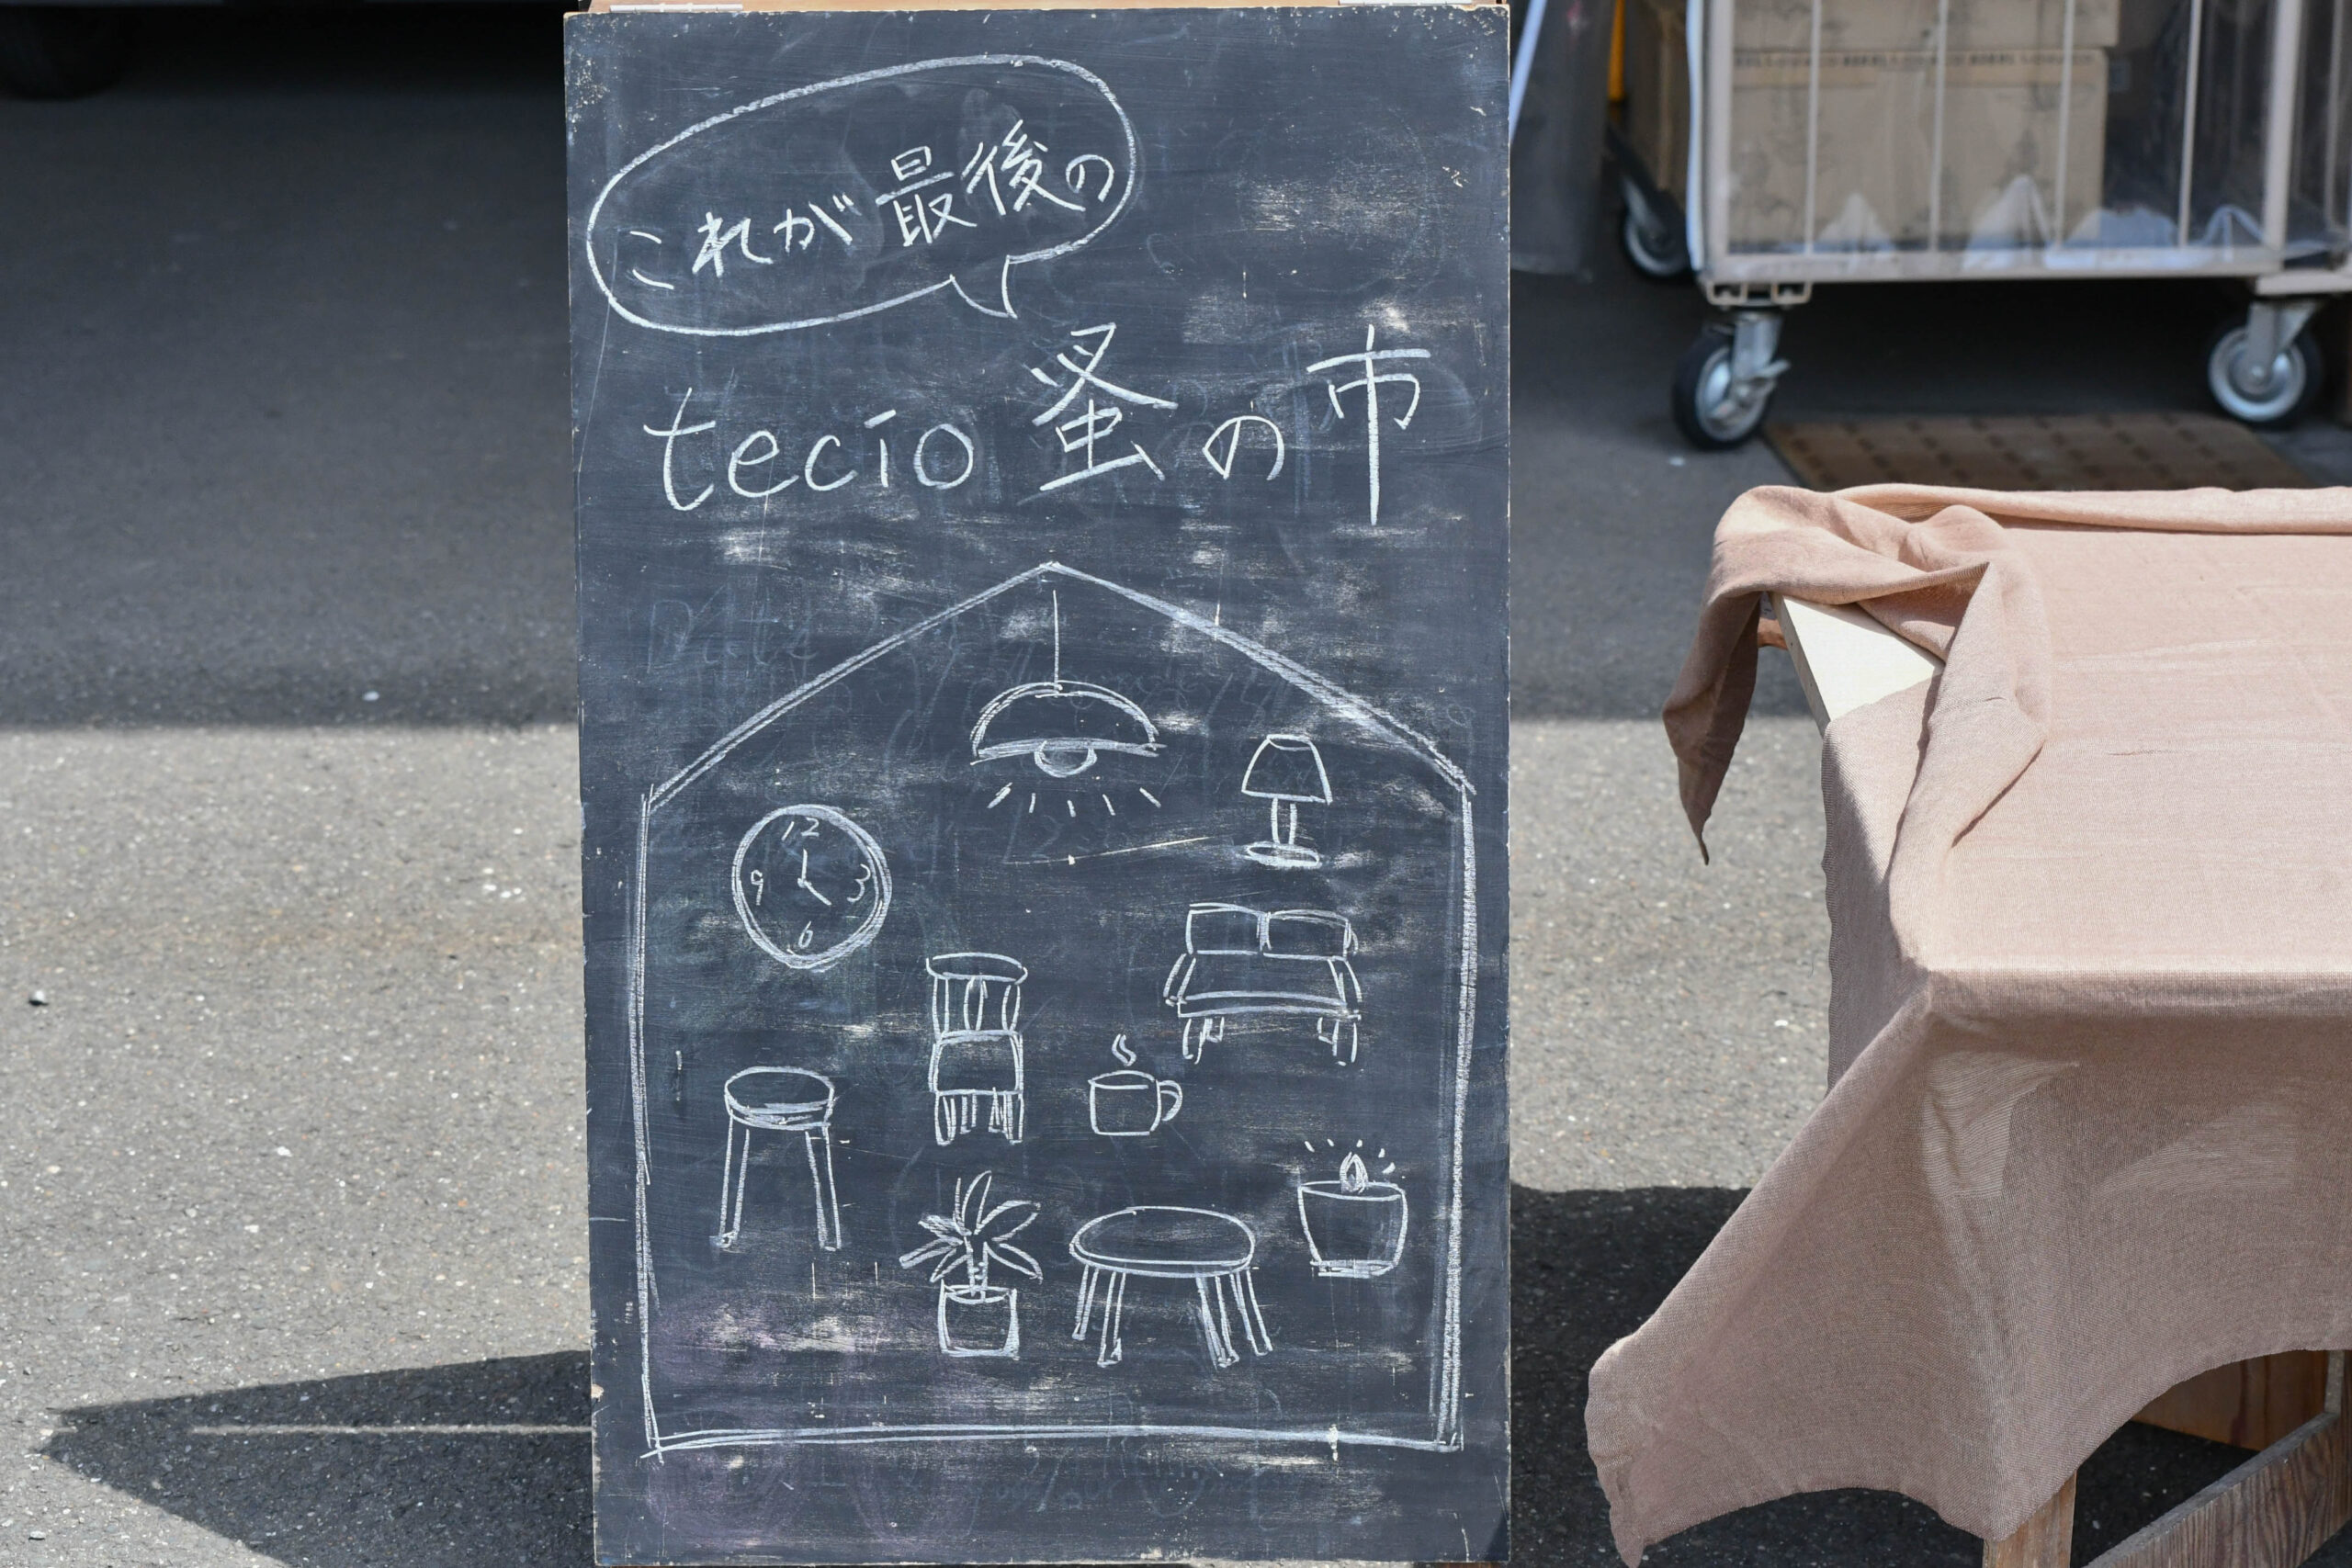 これが最後の
tecio 蚤の市
12
9 3
6